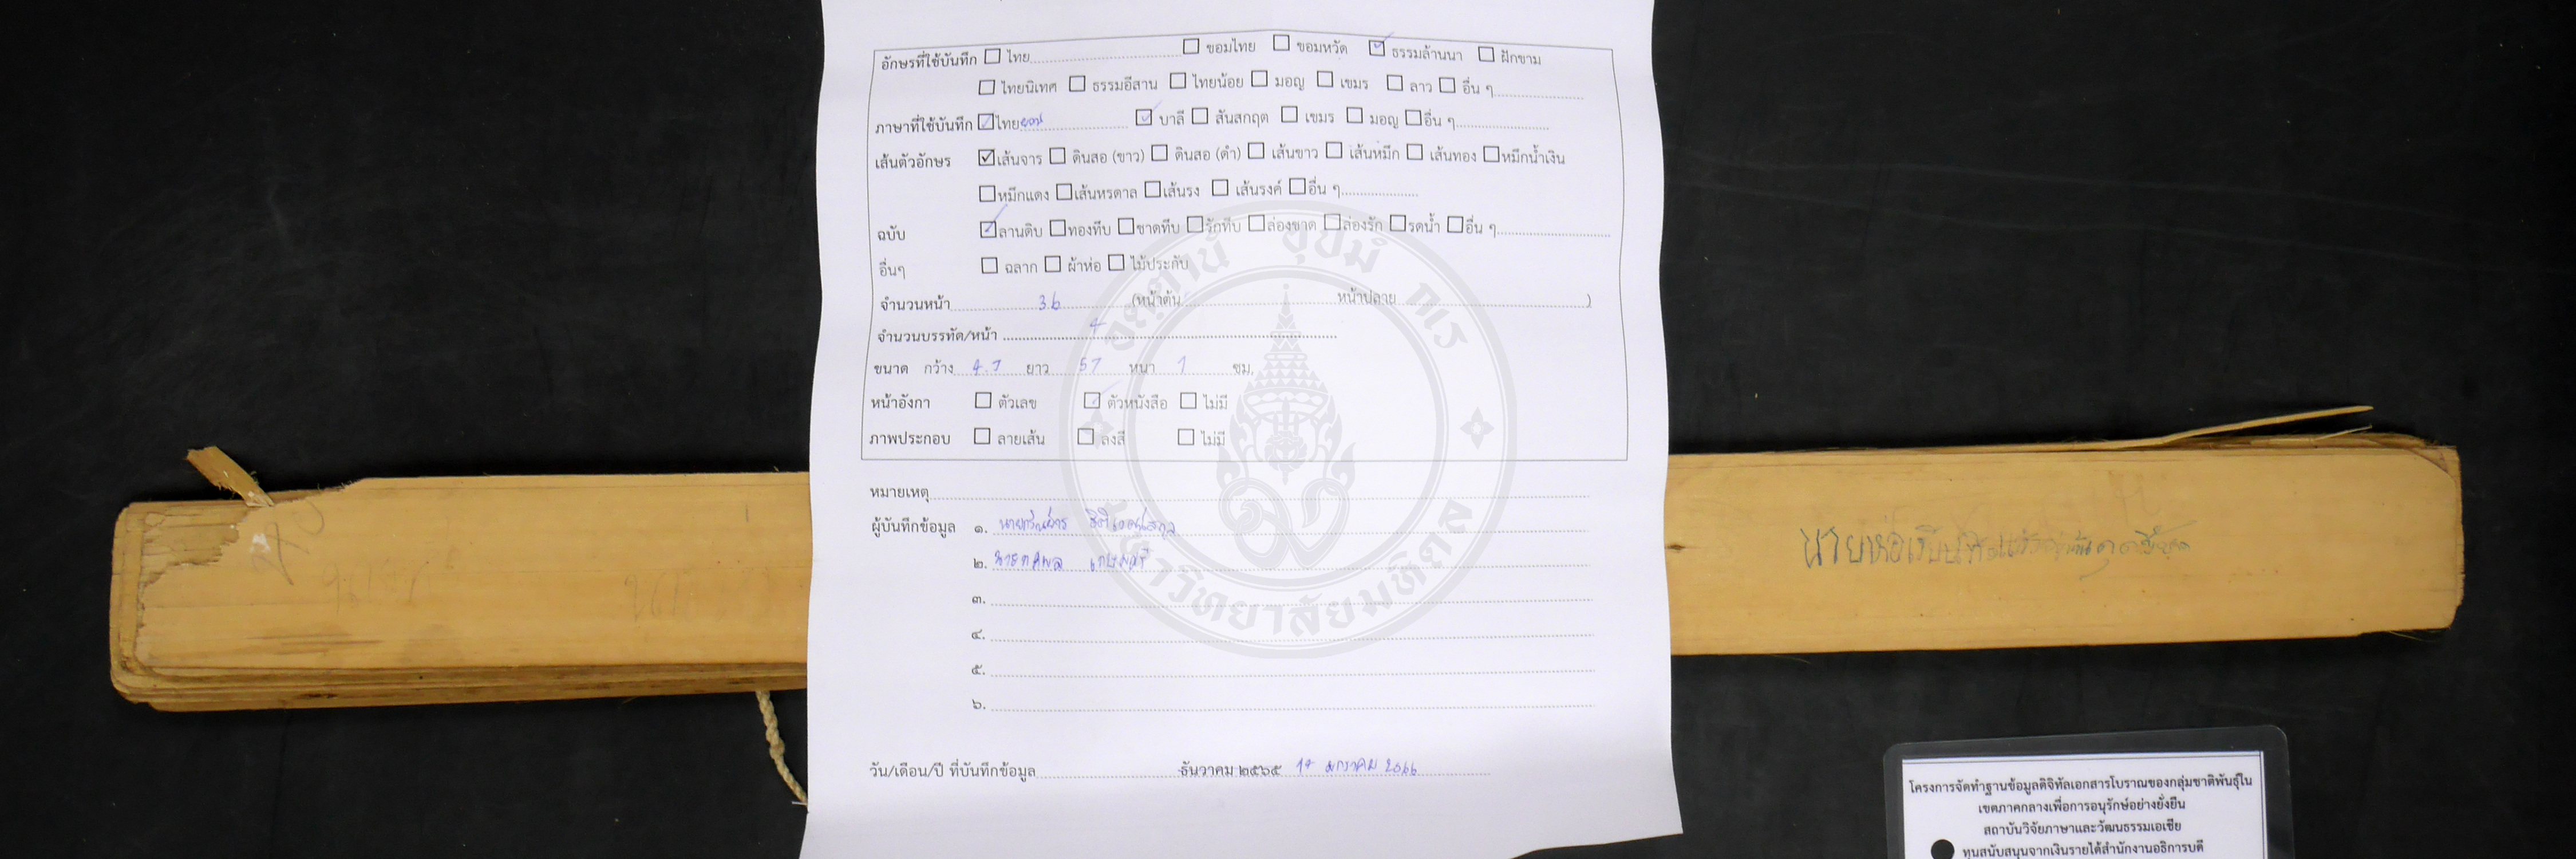 อักษรที่ใช้บันทึก ไทย ขอมไทย ขอมหวัด ธรรมล้านนา ฝักขาม
ไทยนิเทศ ธรรมอีสาน ไทยน้อย มอญ เขมร ลาว อื่น ๆ
ภาษาที่ใช้บันทึก ไทยยวน บาลี สันสกฤต เขมร มอญ อื่น ๆ
เส้นตัวอักษร เส้นจาร ดินสอ (ขาว) ดินสอ (ดำ) เส้นขาว เส้นหมึก เส้นทอง หมึกน้ำเงิน
หมึกแดง เส้นหรดาล เส้นรง เส้นรงค์ อื่น ๆ
ฉบับ ลานดิบ ทองทึบ ชาดทึบ รักทึบ ล่องชาด ล่องรัก รดน้ำ อื่น ๆ
อื่นๆ ฉลาก ผ้าห่อ ไม้ประกับ
จำนวนหน้า 36 (หน้าต้น หน้าปลาย )
จำนวนบรรทัด/หน้า 4
ขนาด กว้าง 4.7 ยาว 57 หนา 1 ซม.
หน้าอังกา ตัวเลข ตัวหนังสือ ไม่มี
ภาพประกอบ ลายเส้น ลงสี ไม่มี
หมายเหตุ
ผู้บันทึกข้อมูล ๑.
๒. นายทศพล
๓.
๔.
๕.
๖.
วัน/เดือน/ปี ที่บันทึกข้อมูล ธันวาคม ๒๕๖๕ 17 มกราคม 2566
มหาวิทยาลัยมหิดล
อตฺตานํ อุปมํ กเร
นายห่อ
โครงการจัดทำฐานข้อมูลดิจิทัลเอกสารโบราณของกลุ่มชาติพันธุ์ใน
เขตภาคกลางเพื่อการอนุรักษ์อย่างยั่งยืน
สถาบันวิจัยภาษาและวัฒนธรรมเอเชีย
ทุนสนับสนุนจากเงินรายได้สำนักงานอธิการบดี